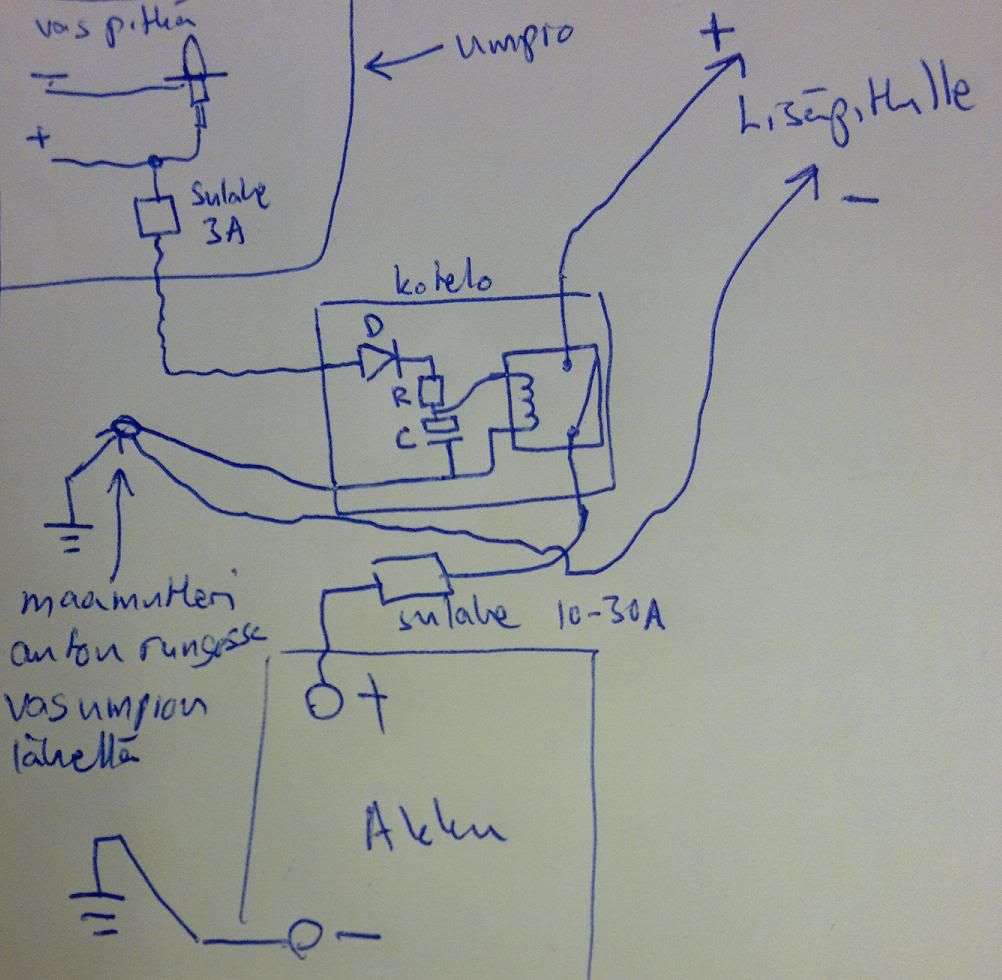 vas pitkä
umpio
+
Lisäpitkille
+
Sulake
3A
-
kotelo
D
R
C
maamutteri
auton rungossa
vas umpion
lähellä
sulake 10-30A
+
Akku
-